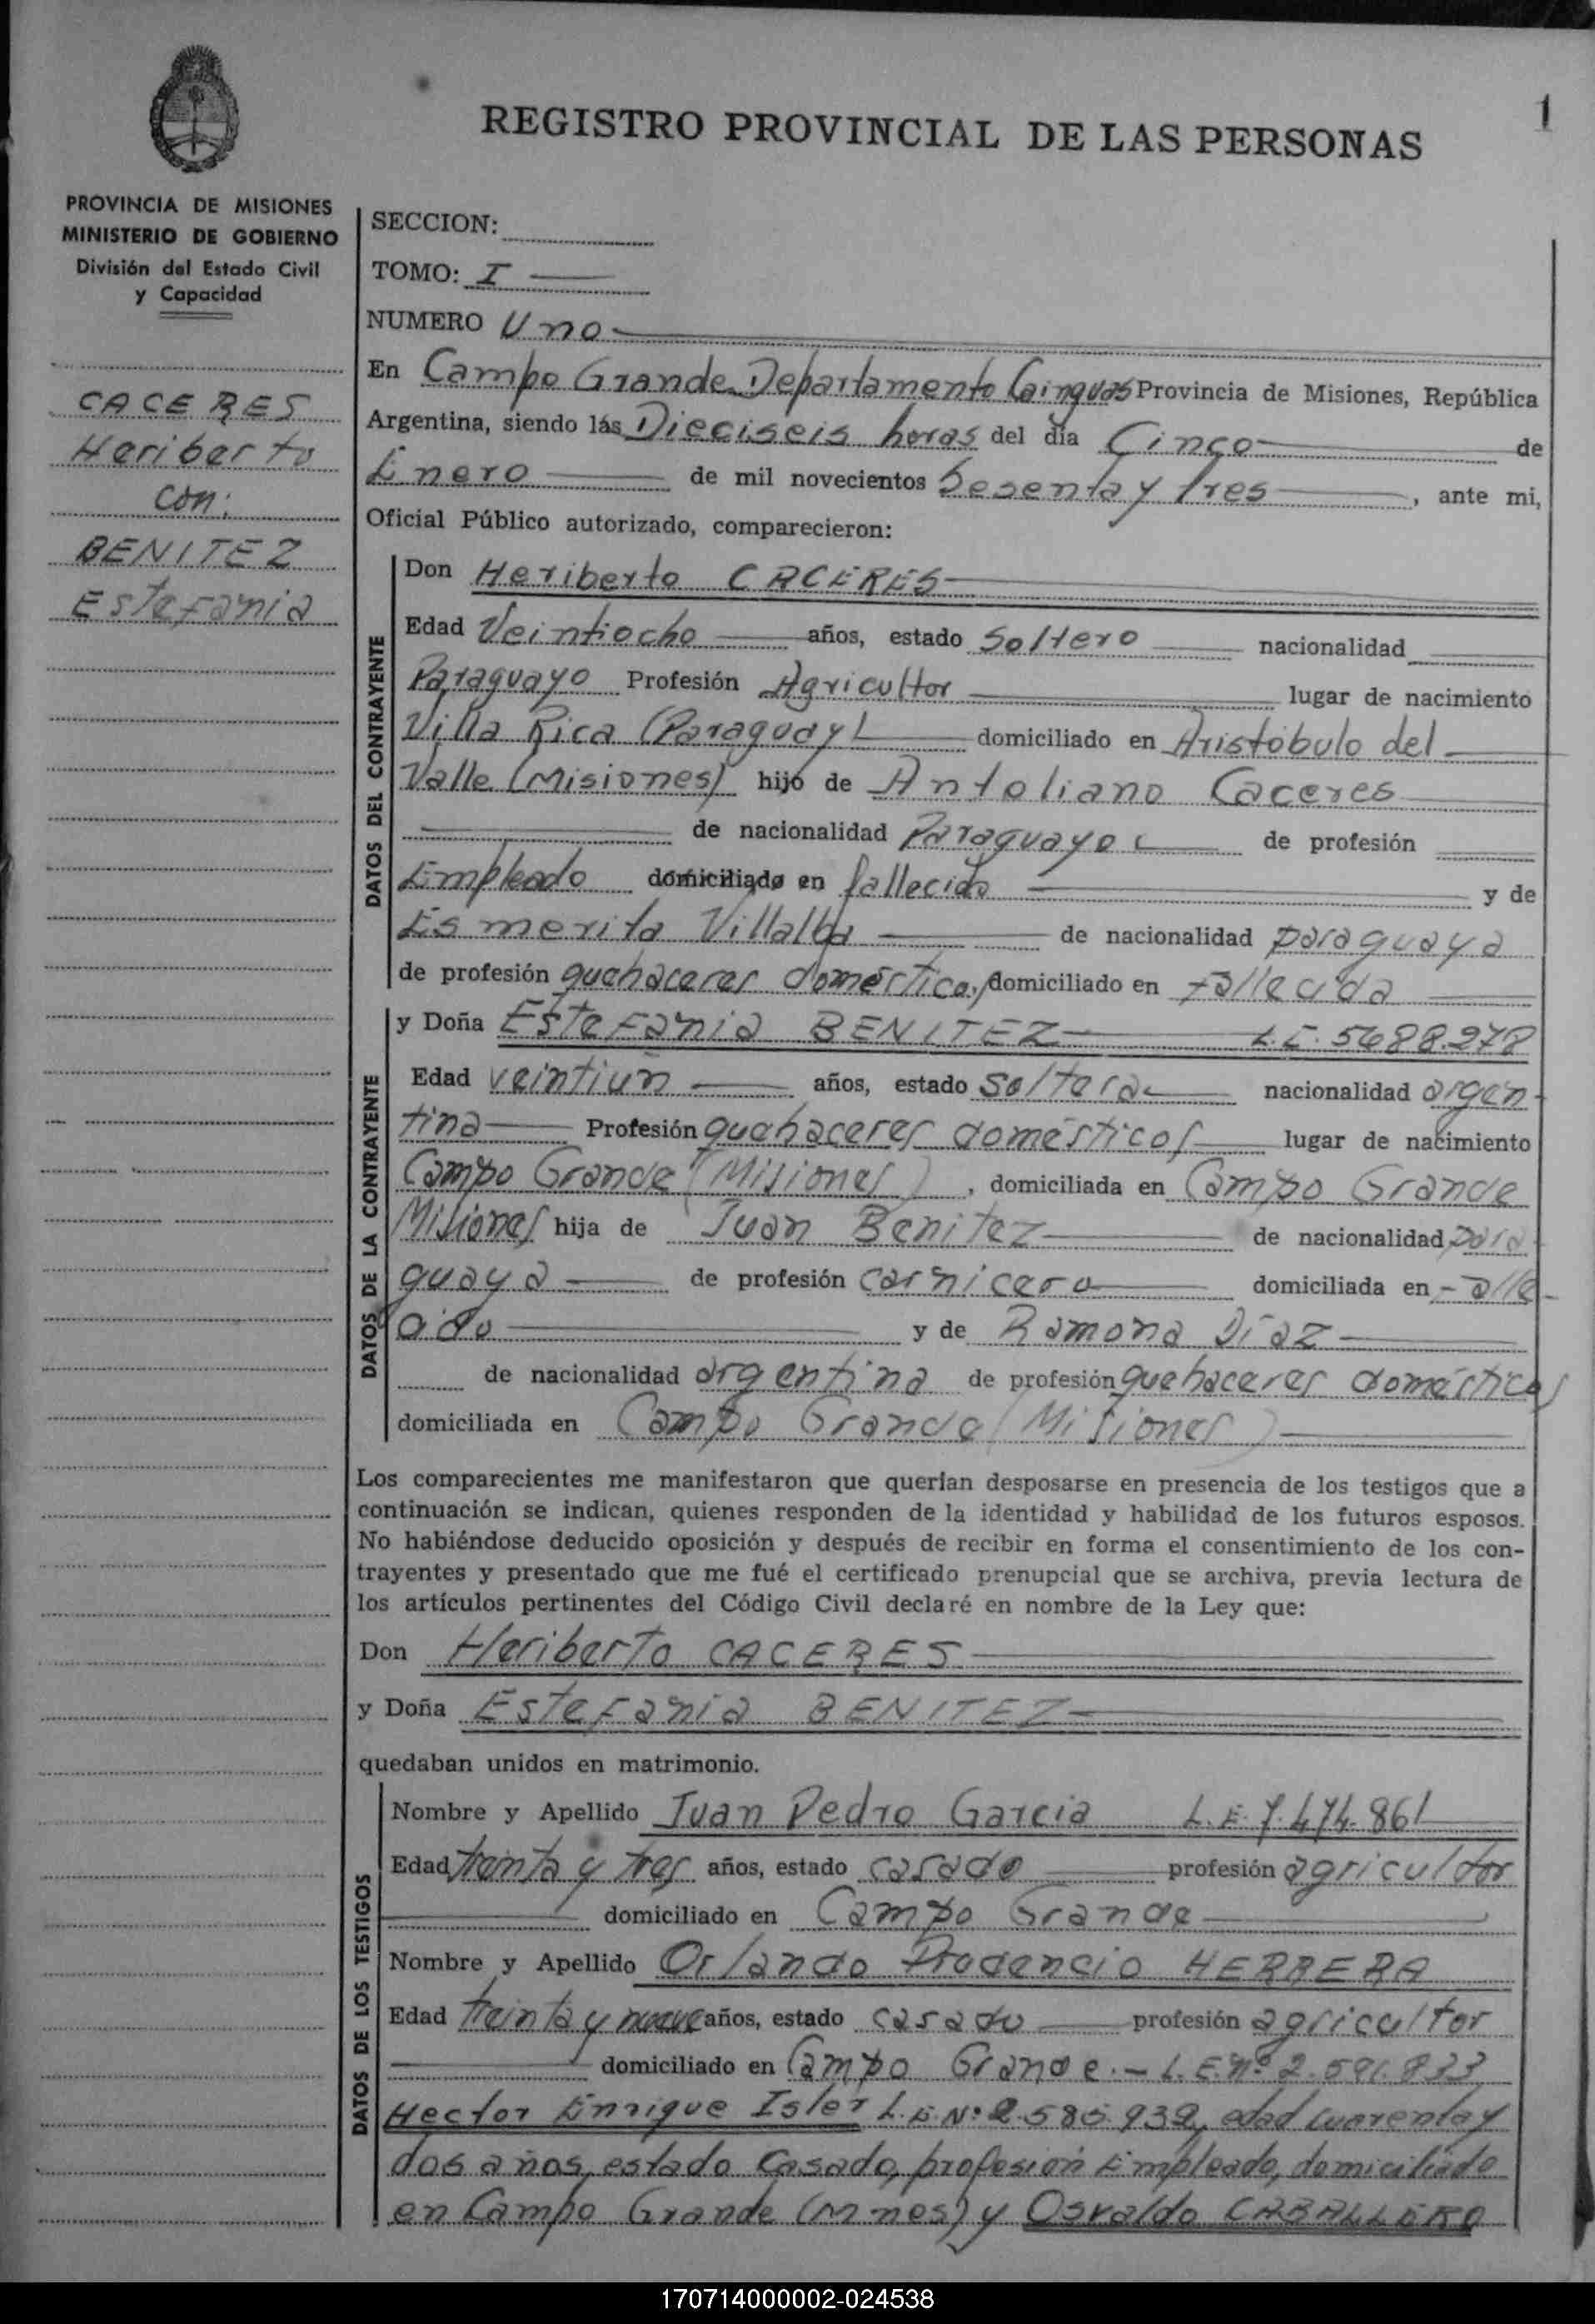 REGISTRO PROVINCIAL DE LAS PERSONAS
1
PROVINCIA DE MISIONES
MINISTERIO DE GOBIERNO
División del Estado Civil
y Capacidad
CACERES
Heriberto
con:
BENITEZ
Estefania
SECCION:
TOMO: I
NUMERO Uno
En Campo Grande Departamento Cainguas Provincia de Misiones, República
Argentina, siendo las Dieciseis horas del día Cinco de
Enero de mil novecientos Sesenta y tres, ante mi,
Oficial Público autorizado, comparecieron:
DATOS DEL CONTRAYENTE
Don Heriberto CACERES
Edad Veintiocho años, estado Soltero nacionalidad
Paraguayo Profesión Agricultor lugar de nacimiento
Villa Rica (Paraguay) domiciliado en Aristóbulo del
Valle (Misiones) hijo de Antoliano Caceres
de nacionalidad Paraguayo de profesión
Empleado domiciliado en fallecido y de
Esmerita Villalba de nacionalidad paraguaya
de profesión quehaceres domésticos, domiciliado en fallecida
DATOS DE LA CONTRAYENTE
y Doña Estefania BENITEZ L.C. 5688.278
Edad veintiún años, estado soltera nacionalidad argen-
tina Profesión quehaceres domésticos lugar de nacimiento
Campo Grande (Misiones), domiciliada en Campo Grande
Misiones hija de Juan Benitez de nacionalidad para-
guaya de profesión carnicero domiciliada en -alle-
cido y de Ramona Díaz
de nacionalidad argentina de profesión quehaceres domésticos
domiciliada en Campo Grande (Misiones)
Los comparecientes me manifestaron que querían desposarse en presencia de los testigos que a
continuación se indican, quienes responden de la identidad y habilidad de los futuros esposos.
No habiéndose deducido oposición y después de recibir en forma el consentimiento de los con-
trayentes y presentado que me fué el certificado prenupcial que se archiva, previa lectura de
los artículos pertinentes del Código Civil declaré en nombre de la Ley que:
Don Heriberto CACERES
y Doña Estefania BENITEZ
quedaban unidos en matrimonio.
DATOS DE LOS TESTIGOS
Nombre y Apellido Juan Pedro Garcia L.E. 7.474.861
Edad treinta y tres años, estado casado profesión agricultor
domiciliado en Campo Grande
Nombre y Apellido Orlando Prudencio HERRERA
Edad treinta y nueve años, estado casado profesión agricultor
domiciliado en Campo Grande.- L.E. Nº 2.591.833
Hector Enrique Isler L.E. Nº 2.585.932, edad cuarenta y
dos años, estado Casado, profesión Empleado, domiciliado
en Campo Grande (Mnes) y Osvaldo CABALLERO
170714000002-024538